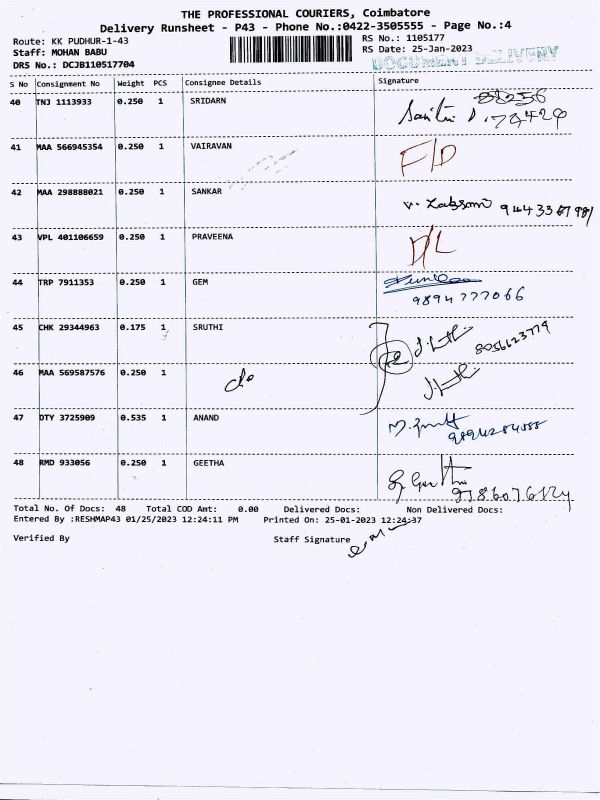 THE PROFESSIONAL COURIERS, Coimbatore
Delivery Runsheet - P43 - Phone No.:0422-3505555 - Page No.:4
Route: KK PUDHUR-1-43
RS No.: 1105177
Staff: MOHAN BABU
RS Date: 25-Jan-2023
DRS No.: DCJB110517704
DOCUMENT DELIVERY
S No Consignment No Weight PCS Consignee Details Signature
40 TNJ 1113933 0.250 1 SRIDARN
41 MAA 566945354 0.250 1 VAIRAVAN F/D
42 MAA 298888021 0.250 1 SANKAR
43 VPL 401106659 0.250 1 PRAVEENA D/L
44 TRP 7911353 0.250 1 GEM
9894777066
45 CHK 29344963 0.175 1 SRUTHI 8056623779
46 MAA 569587576 0.250 1
47 DTY 3725909 0.535 1 ANAND
48 RMD 933056 0.250 1 GEETHA
Total No. Of Docs: 48 Total COD Amt: 0.00 Delivered Docs: Non Delivered Docs:
Entered By :RESHMAP43 01/25/2023 12:24:11 PM Printed On: 25-01-2023 12:24:37
Verified By Staff Signature